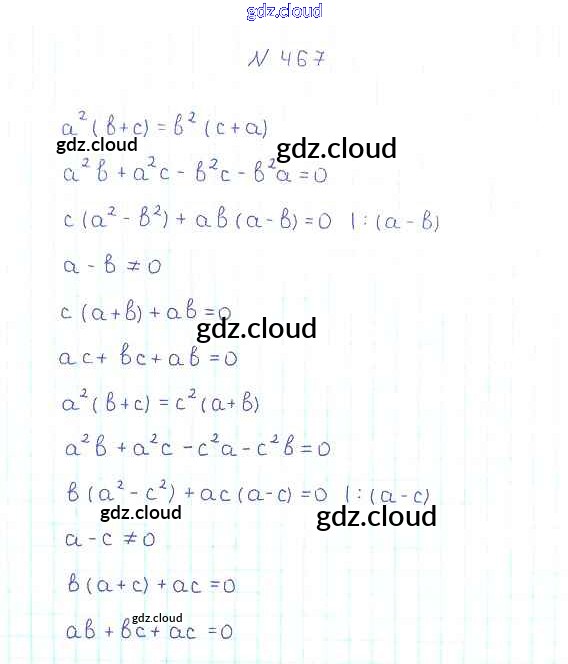 gdz.cloud
N 467
a²(b+c)=b²(c+a)
gdz.cloud
gdz.cloud
a²b+a²c-b²c-b²a=0
c(a²-b²)+ab(a-b)=0 |:(a-b)
a-b≠0
c(a+b)+ab=0
gdz.cloud
ac+bc+ab=0
a²(b+c)=c²(a+b)
a²b+a²c-c²a-c²b=0
b(a²-c²)+ac(a-c)=0 |:(a-c)
gdz.cloud
gdz.cloud
a-c≠0
b(a+c)+ac=0
gdz.cloud
ab+bc+ac=0